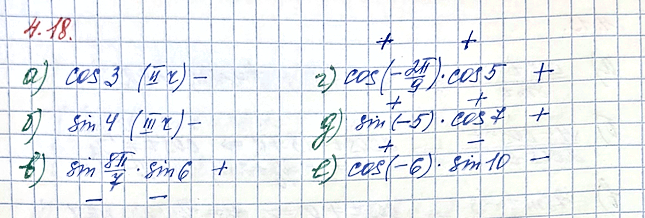 4.18.
а) cos 3 (II ч) −
б) sin 4 (III ч) −
в) sin 8π/7 · sin 6 +
− −
+ +
г) cos(−2π/9) · cos 5 +
+ +
д) sin(−5) · cos 7 +
+ −
е) cos(−6) · sin 10 −